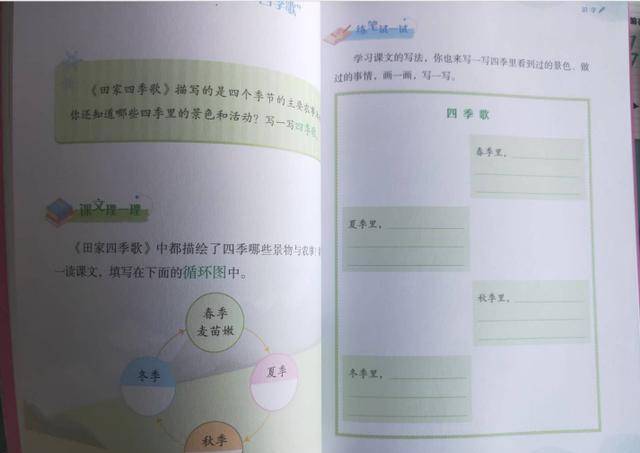 四季歌"
《田家四季歌》描写的是四个季节的主要农事
你还知道哪些四季里的景色和活动？写一写四季歌
课文理一理
《田家四季歌》中都描绘了四季哪些景物与农事
一读课文，填写在下面的循环图中。
春季
麦苗嫩
冬季
夏季
秋季
识字
练笔试一试
学习课文的写法，你也来写一写四季里看到过的景色、做
过的事情，画一画，写一写。
四季歌
春季里，
夏季里，
秋季里，
冬季里，